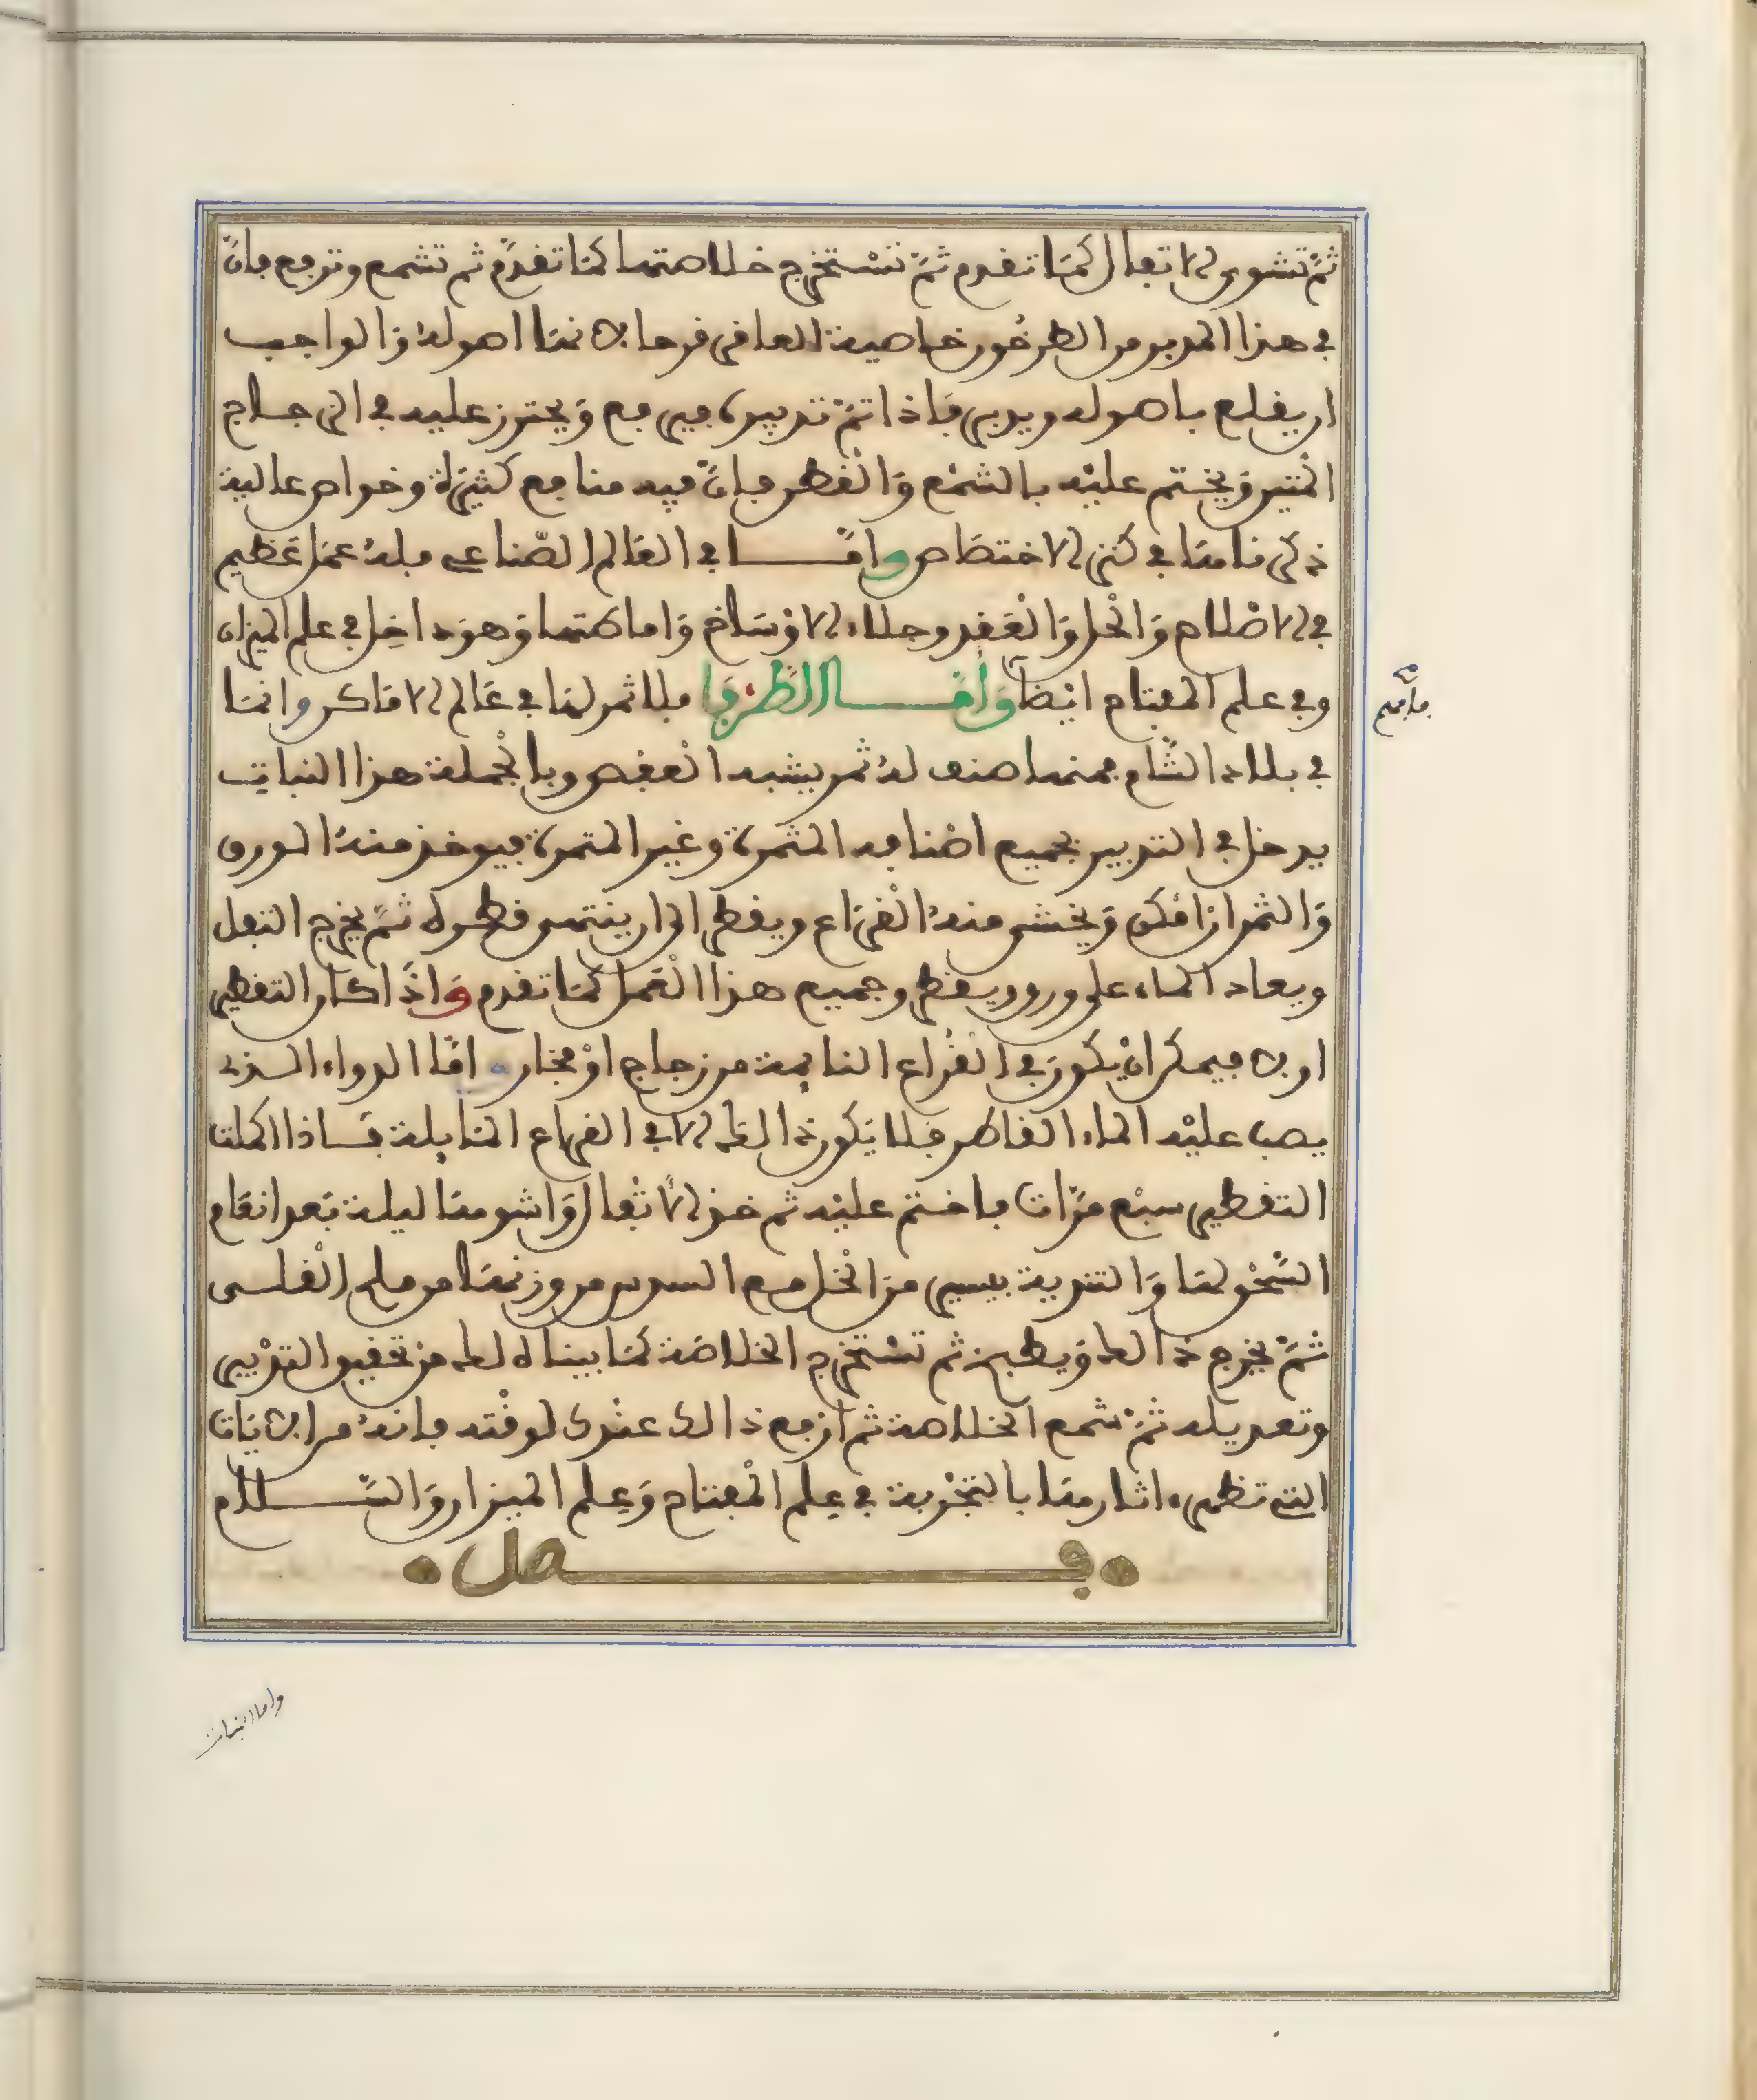 ثمّ تشوى الاثفال كما تقدم ثمّ تستخرج خلاصتها كما تقدّم ثم تشمع وترفع فانّ
في هذا المدبر من الطرخون خاصية العاقر قرحا لانها اصوله والواجب
ان يقلع باصوله ويدبر فاذا تمّ تدبيره فيرفع ويحترز عليه في الزجاج
المتين ويختم عليه بالشمع والقطر فانّ فيه منافع كثيرة وخواص عالية
ذكرناها في كنز الاختصاص واما في العالم الصّناعي فله عمل عظيم
في الاصلاح والحل والعقد وجلاء الاوساخ واماطتها وهو داخل في علم الميزان
وفي علم المفتاح ايضا واما الطرفا فلا ثمر لها في عالم الاماكن وانما
في بلاد الشام فمنها صنف له ثمر يشبه العفص وبالجملة هذا النبات
يدخل في التدبير بجميع اصنافه المثمرة وغير المثمرة فيوخذ منه الورق
والثمر ان امكن ويحشى منه القراع ويقطر الى ان ينتهى قطره ثمّ يخرج الثفل
ويعاد الماء على ورق ويقطر وجميع هذا العمل كما تقدم واذا كان التقطير
اولا فيمكن ان يكون في القراع النايمة من زجاج او فخار و امّا الدواء الذي
يصب عليه الماء القاطر فلا يكون ذالك الا في القراع المايلة فاذا اكملت
التقطير سبع مرّات فاختم عليه ثم خذ الاثفال واشوها ليلة بعد انعام
السّحق لها والتندية بيسير من الخل مع السدس من وزنها من ملح القلى
ثمّ يخرج ذالك ويطبخ ثم تستخرج الخلاصة كما بيناه لك من تحقيق التدبير
وتعديله ثمّ شمع الخلاصة ثم ارفع ذالك عندك لوقته فانه من الايات
التي تظهر اثارها بالتجربة في علم المفتاح وعلم الميزان والسّلام
فصل
واما النبات